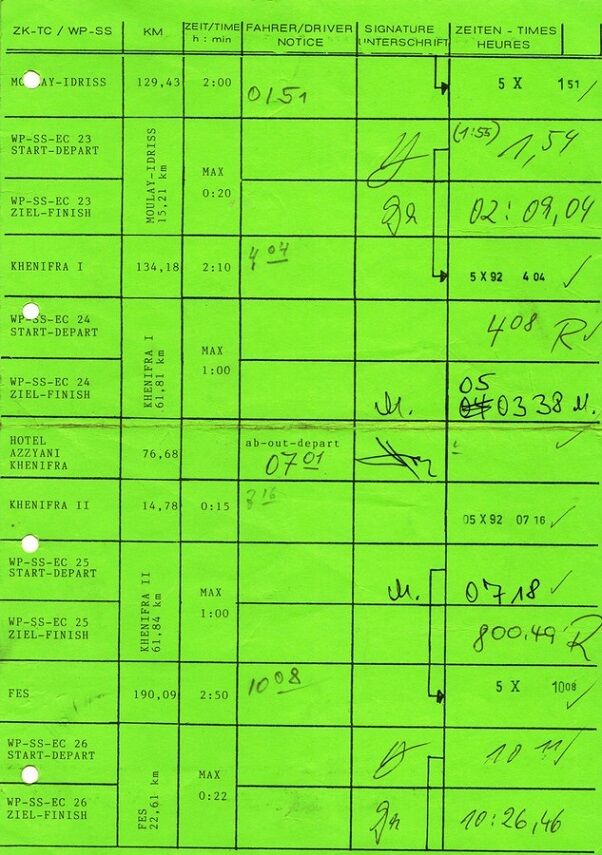 ZK-TC / WP-SS KM ZEIT/TIME FAHRER/DRIVER SIGNATURE ZEITEN - TIMES
h : min NOTICE UNTERSCHRIFT HEURES
MOULAY-IDRISS 129,43 2:00 5 X 1 51
0151
WP-SS-EC 23 (1:55)
START-DEPART 1,54
MOULAY-IDRISS
15,21 km
MAX
0:20
WP-SS-EC 23
ZIEL-FINISH 02:09,04
KHENIFRA I 134,18 2:10 4 04 5 X 92 4 04
WP-SS-EC 24
START-DEPART 4 08 R
KHENIFRA I
61,81 km
MAX
1:00
WP-SS-EC 24 05
ZIEL-FINISH M. 03 38 M.
HOTEL ab-out-depart
AZZYANI 76,68 07 01
KHENIFRA
KHENIFRA II 14,78 0:15 05 X 92 07 16
WP-SS-EC 25
START-DEPART M. 07 18
KHENIFRA II
61,84 km
MAX
1:00
WP-SS-EC 25
ZIEL-FINISH 800.49 R
FES 190,09 2:50 10 08 5 X 10 08
WP-SS-EC 26
START-DEPART 10 11
FES
22,61 km
MAX
0:22
WP-SS-EC 26
ZIEL-FINISH 10:26,46